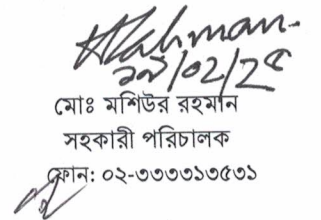 Rahman
১৯/০২/২৫
মোঃ মশিউর রহমান
সহকারী পরিচালক
ফোন: ০২-৩৩৩৩১৩৫৩১